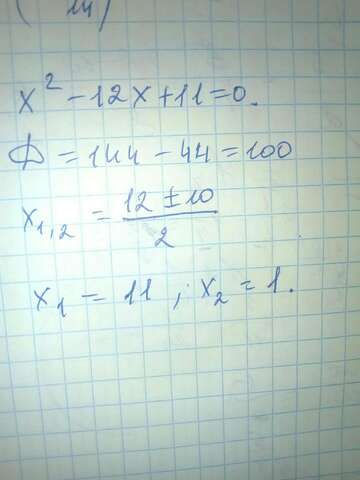 x² - 12x + 11 = 0.
D = 144 - 44 = 100
x₁,₂ = (12 ± 10) / 2
x₁ = 11 ; x₂ = 1.